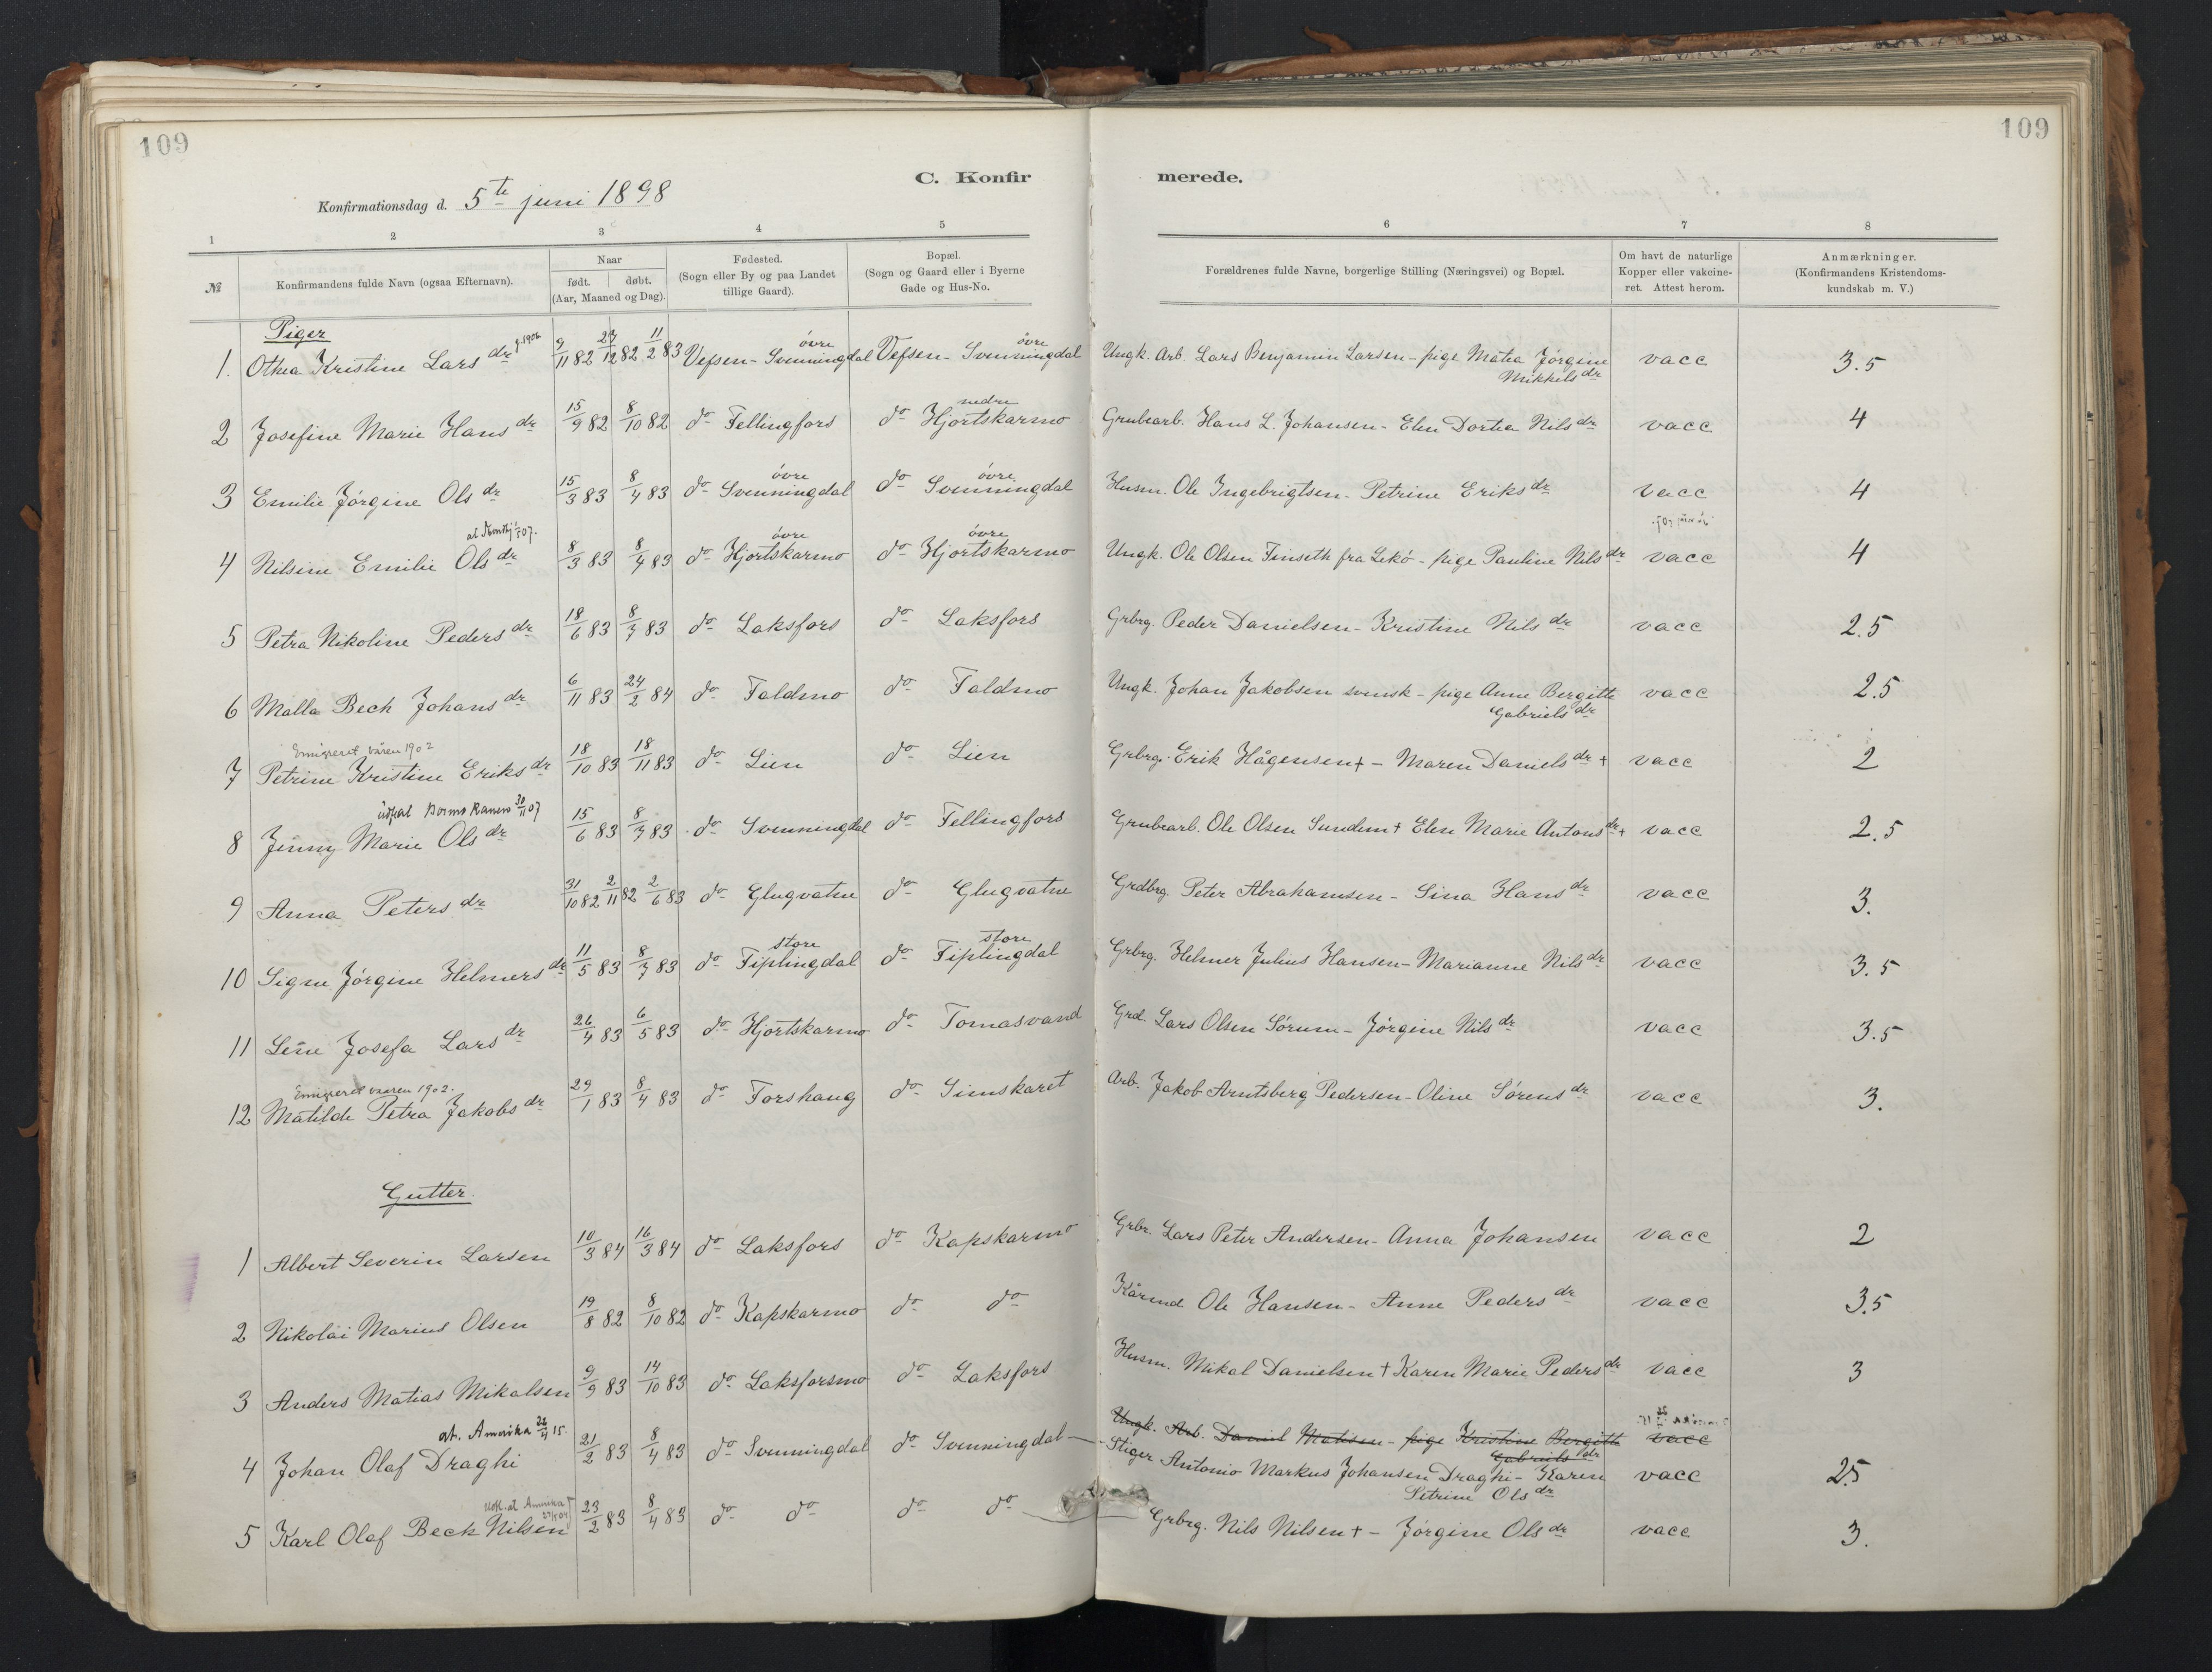 109
109
C. Konfir
merede.
Konfirmationsdag d. 5te juni 1898
1 2 3 4 5 6 7 8
№
Konfirmandens fulde Navn (ogsaa Efternavn).
Naar
født. døbt.
(Aar, Maaned og Dag).
Fødested.
(Sogn eller By og paa Landet
tillige Gaard).
Bopæl.
(Sogn og Gaard eller i Byerne
Gade og Hus-No.
Forældrenes fulde Navne, borgerlige Stilling (Næringsvei) og Bopæl.
Om havt de naturlige
Kopper eller vakcine-
ret. Attest herom.
Anmærkninger.
(Konfirmandens Kristendoms-
kundskab m. V.)
Piger
1. Othea Kristine Lars dr 9/11 82 27/12 82 11/2 83 Vefsen - øvre Svenningdal Vefsen - øvre Svenningdal Ungk. Arb. Lars Benjamin Larsen - pige Matea Jørgine vacc 3.5
Mikkels dr
2 Josefine Marie Hans dr 15/9 82 8/10 82 do Fellingfors do nedre Hjortskarmo Grubearb. Hans L. Johansen - Elen Dortea Nils dr vacc 4
3 Emilie Jørgine Ols dr 15/3 83 8/4 83 do øvre Svenningdal do øvre Svenningdal Husm. Ole Ingebrigtsen - Petrine Eriks dr vacc 4
4 Nilsine Emilie Ols dr 8/3 83 8/4 83 do øvre Hjortskarmo do øvre Hjortskarmo Ungk. Ole Olsen Finseth fra Lekø - pige Pauline Nils dr vacc 4
5 Petra Nikoline Peders dr 18/6 83 8/7 83 do Laksfors do Laksfors Grbrg. Peder Danielsen - Kristine Nils dr vacc 2.5
6 Malla Beck Johans dr 6/11 83 24/2 84 do Faldmo do Faldmo Ungk. Johan Jakobsen svensk - pige Anne Bergitte vacc 2.5
Gabriels dr
Emigreret våren 1902
7 Petrine Kristine Eriks dr 18/10 83 18/11 83 do Lien do Lien Grbrg. Erik Hågensen + - Maren Daniels dr + vacc 2
30/11 07
8 Jenny Marie Ols dr 15/6 83 8/7 83 do Svenningdal do Fellingfors Grubearb. Ole Olsen Sundem + Elen Marie Antons dr + vacc 2.5
9 Anna Peters dr 31/10 82 2/11 82 2/6 83 do Glugvatne do Glugvatne Grdbrg. Peter Abrahamsen - Sina Hans dr vacc 3.
10 Signe Jørgine Helmers dr 11/5 83 8/7 83 do store Fiplingdal do store Fiplingdal Grbrg. Helmer Julius Hansen - Marianne Nils dr vacc 3.5
11 Lene Josefa Lars dr 26/4 83 6/5 83 do Hjortskarmo do Tomasvand Grd. Lars Olsen Sørum - Jørgine Nils dr vacc 3.5
Emigreret vaaren 1902.
12 Matilde Petra Jakobs dr 29/1 83 8/4 83 do Forshaug do Simskaret Arb. Jakob Arntsberg Pedersen - Oline Sørens dr vacc 3.
Gutter.
1 Albert Severin Larsen 10/3 84 16/3 84 do Laksfors do Kapskarmo Grbr. Lars Peter Andersen - Anna Johansen vacc 2
2 Nikolai Marius Olsen 19/8 82 8/10 82 do Kapskarmo do do Kårmd Ole Hansen - Anne Peders dr vacc 3.5
3 Anders Matias Mikalsen 9/9 83 14/10 83 do Laksforsmo do Laksfors Husm. Mikal Danielsen + Karen Marie Peders dr vacc 3
at. Amerika 26/4 15.
Ungk. Arb. Daniel Matisen - pige Kristine Bergitte Gabriels dr vacc
4 Johan Olaf Draghi 21/2 83 8/4 83 do Svenningdal do Svenningdal - Stiger Antonio Markus Johansen Draghi - Karen vacc 2.5
Petrine Ols dr
5 Karl Olaf Beck Nilsen 23/2 83 8/4 83 do do do do Grbrg. Nils Nilsen + - Jørgine Ols dr vacc 3.